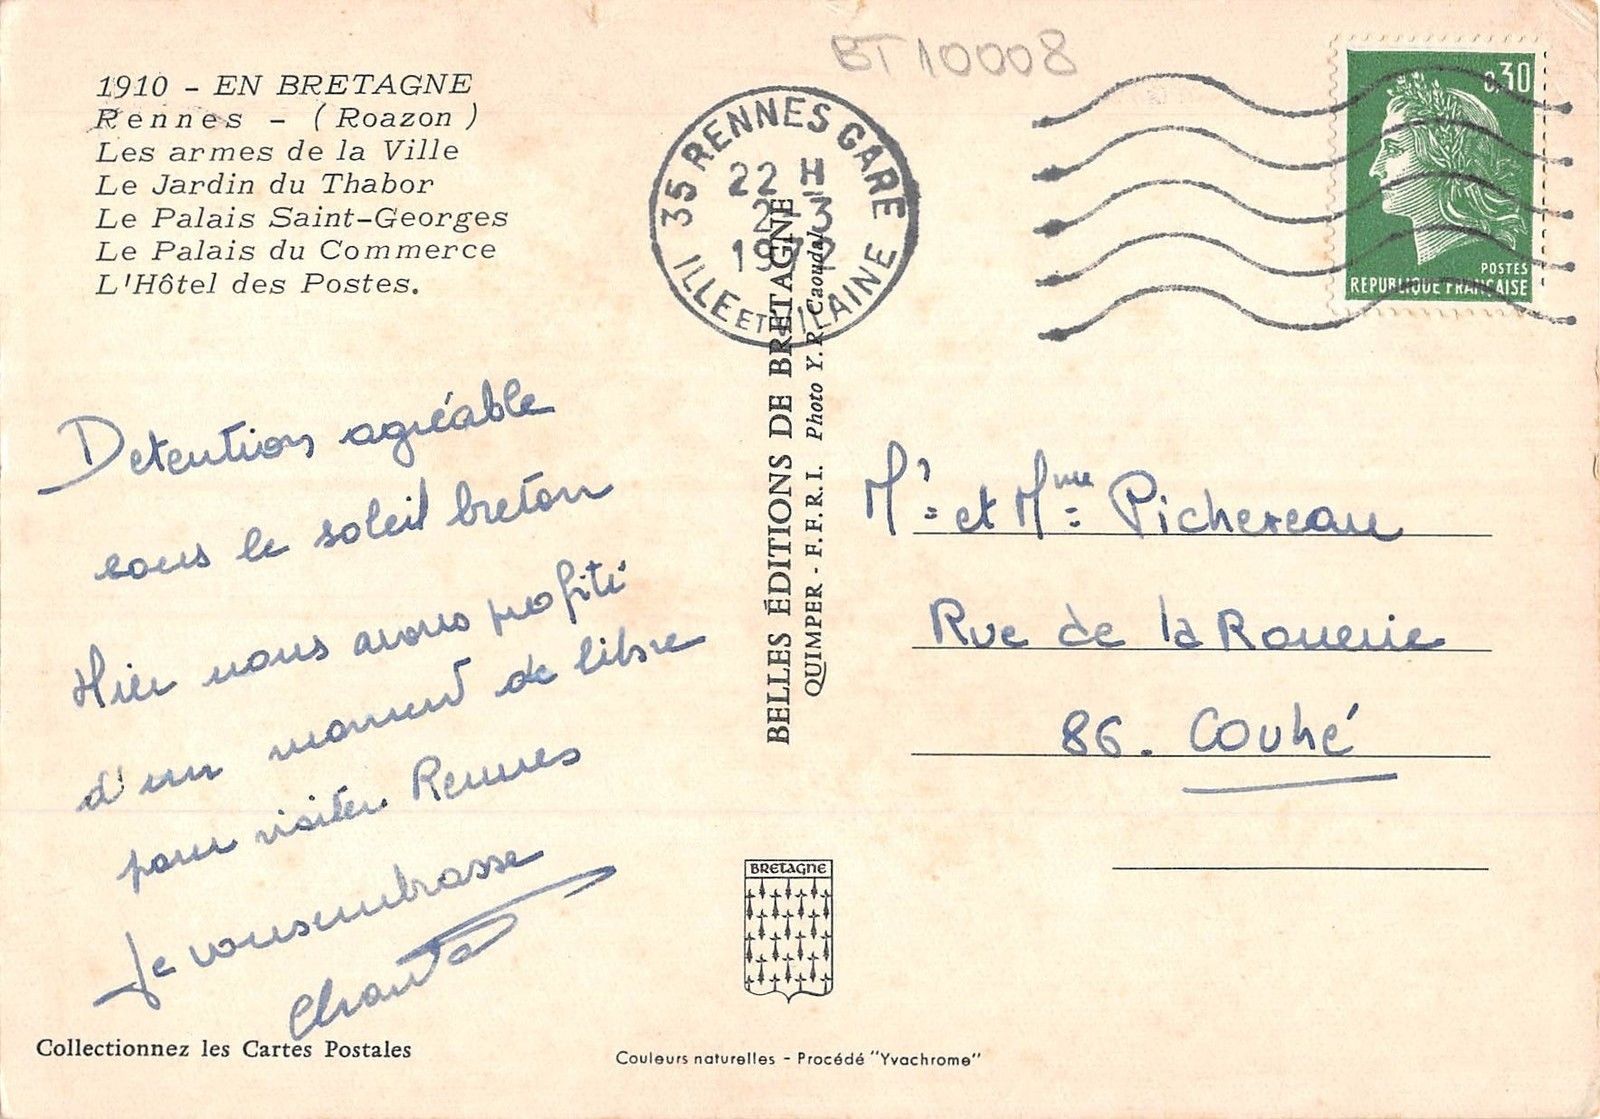 BT 10008
1910 - EN BRETAGNE
Rennes - (Roazon)
Les armes de la Ville
Le Jardin du Thabor
Le Palais Saint-Georges
Le Palais du Commerce
L'Hôtel des Postes.
35 RENNES GARE
22 H
3
1972
ILLE ET VILAINE
0,30
POSTES
REPUBLIQUE FRANÇAISE
Detention agréable
sous le soleil breton
Hier nous avons profité
d'un moment de libre
pour visiter Rennes
Je vous embrasse
Chantal
BELLES ÉDITIONS DE BRETAGNE
QUIMPER - F.F.R.I. Photo Y.R. Caoudal
Mr et Mme Pichereau
Rue de la Rouerie
86. Couhé
BRETAGNE
Collectionnez les Cartes Postales
Couleurs naturelles - Procédé "Yvachrome"